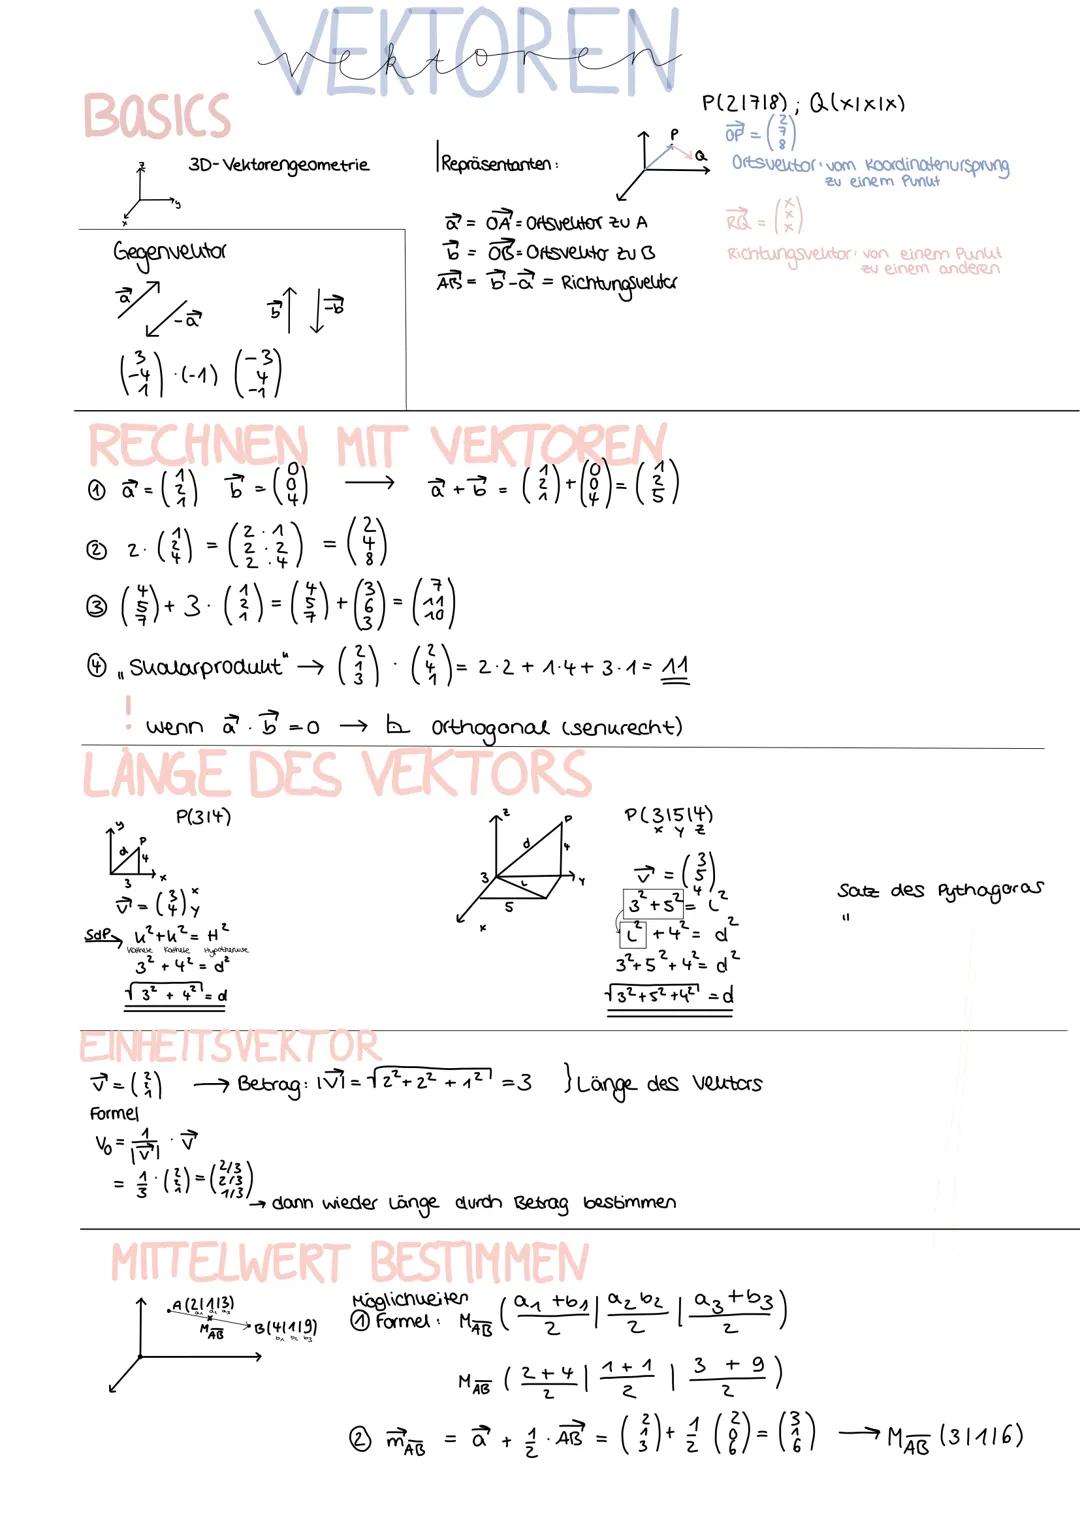 VEKTOREN
vektoren
BASICS
P(2|7|8); Q(x|x|x)
3D-Vektorengeometrie
z
y
x
Repräsentanten:
P
Q
OP⃗ = (2 7 8)
Ortsvektor: vom Koordinatenursprung
zu einem Punkt
a⃗ = OA⃗ = Ortsvektor zu A
b⃗ = OB⃗ = Ortsvekto zu B
AB⃗ = b⃗ - a⃗ = Richtungsvektor
RQ⃗ = (x x x)
Richtungsvektor: von einem Punkt
zu einem anderen
Gegenvektor
a⃗ -a⃗ b⃗ -b⃗
(3 -4 1) · (-1) (-3 4 -1)
RECHNEN MIT VEKTOREN
① a⃗ = (1 2 1) b⃗ = (0 0 4) → a⃗ + b⃗ = (1 2 1) + (0 0 4) = (1 2 5)
② 2 · (1 2 4) = (2·1 2·2 2·4) = (2 4 8)
③ (4 5 7) + 3 · (1 2 1) = (4 5 7) + (3 6 3) = (7 11 10)
④ „Skalarprodukt" → (2 1 3) · (2 4 1) = 2·2 + 1·4 + 3·1 = 11
! wenn a⃗ · b⃗ = 0 → orthogonal (senkrecht)
LÄNGE DES VEKTORS
P(3|4)
y
d P 4
3 x
v⃗ = (3 4) x y
SdP → k² + k² = H²
Kathete Kathete Hypothenuse
3² + 4² = d²
√3² + 4² = d
z
P
d 4
3 L y
5
x
P(3|5|4)
x y z
v⃗ = (3 5 4)
3² + 5² = L²
L² + 4² = d²
3² + 5² + 4² = d²
√3² + 5² + 4² = d
Satz des Pythagoras
"
EINHEITSVEKTOR
v⃗ = (2 2 1) → Betrag: |v⃗| = √2² + 2² + 1² = 3 } Länge des Vektors
Formel
V₀ = 1/|v⃗| · v⃗
= 1/3 · (2 2 1) = (2/3 2/3 1/3)
→ dann wieder Länge durch Betrag bestimmen
MITTELWERT BESTIMMEN
A(2|1|3)
a₁ a₂ a₃
M_AB
B(4|1|9)
b₁ b₂ b₃
Möglichkeiten
① Formel: M_AB ( a₁ + b₁ / 2 | a₂ b₂ / 2 | a₃ + b₃ / 2 )
M_AB ( 2 + 4 / 2 | 1 + 1 / 2 | 3 + 9 / 2 )
② m⃗_AB = a⃗ + 1/2 · AB⃗ = (2 1 3) + 1/2 (2 0 6) = (3 1 6) → M_AB (3|1|6)